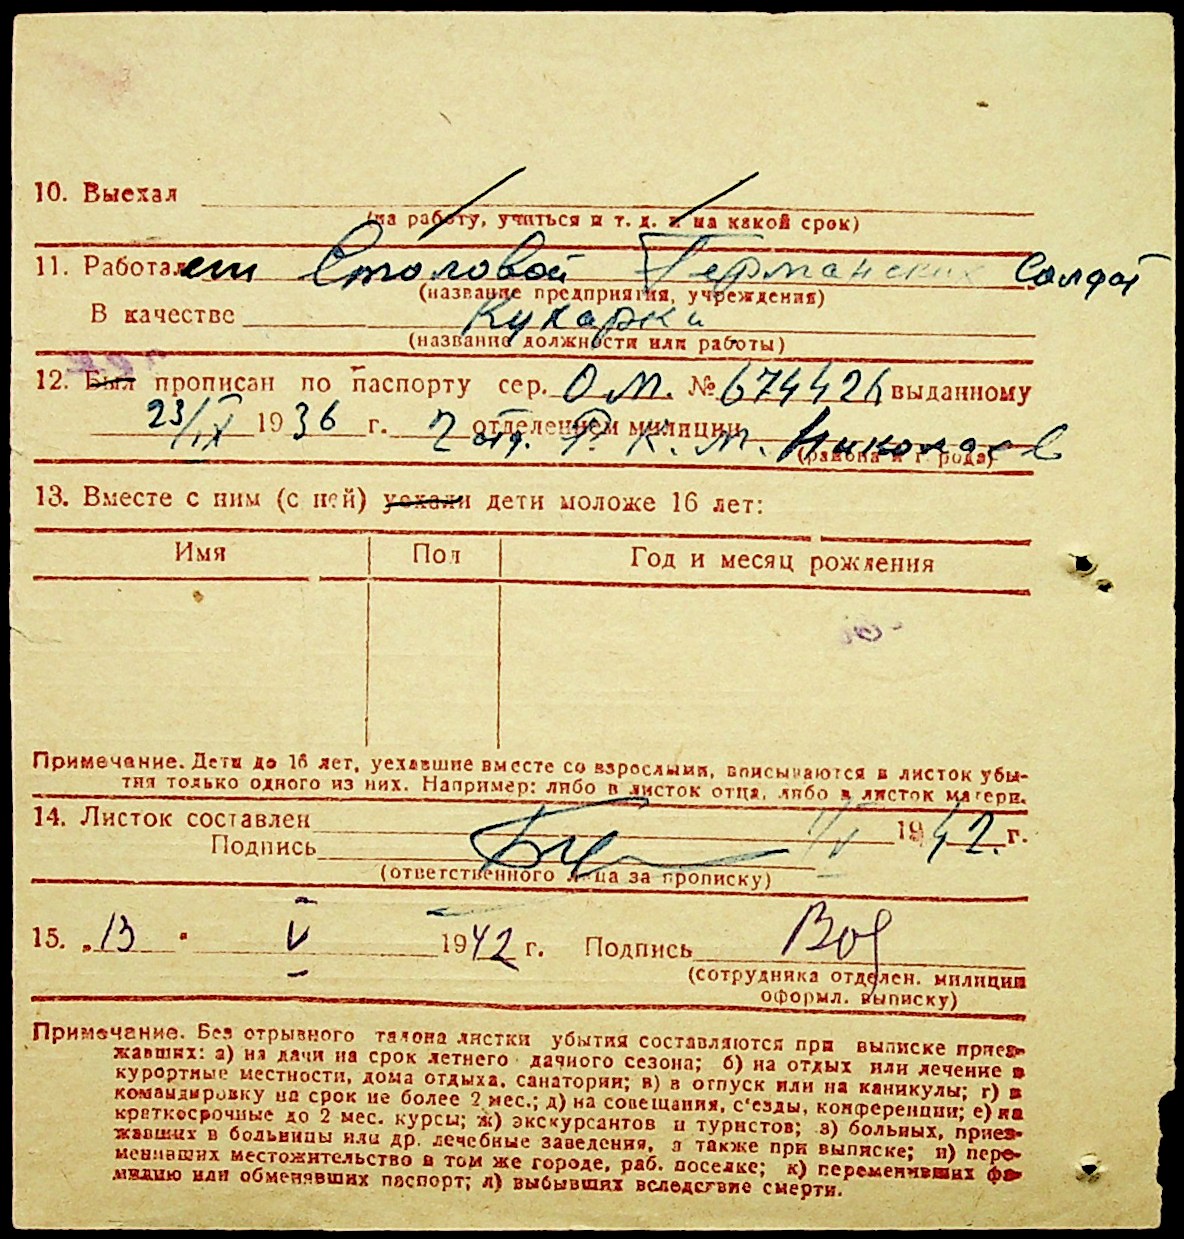 10. Выехал
(на работу, учиться и т. д. и на какой срок)
11. Работает Столовой Германских Солдат
(название предприятия, учреждения)
В качестве Кухарки
(название должности или работы)
12. Был прописан по паспорту сер. О М. № 674426 выданному
23/IX 1936 г. 2 отд. отделением милиции Р. К. М. Николаев
(района и г. рода)
13. Вместе с ним (с ней) уехали дети моложе 16 лет:
Имя Пол Год и месяц рождения
Примечание. Дети до 16 лет, уехавшие вместе со взрослыми, вписываются в листок убы-
тия только одного из них. Например: либо в листок отца, либо в листок матери.
14. Листок составлен 1/V 1942. г.
Подпись
(ответственного лица за прописку)
15. „13 " V 1942 г. Подпись
(сотрудника отделен. милиции
оформл. выписку)
Примечание. Без отрывного талона листки убытия составляются при выписке приез-
жавших: а) на дачи на срок летнего дачного сезона; б) на отдых или лечение в
курортные местности, дома отдыха, санатории; в) в отпуск или на каникулы; г) в
командировку на срок не более 2 мес.; д) на совещания, с'езды, конференции; е) на
краткосрочные до 2 мес. курсы; ж) экскурсантов и туристов; з) больных, приез-
жавших в больницы или др. лечебные заведения, а также при выписке; и) пере-
менивших местожительство в том же городе, раб. поселке; к) переменивших фа-
милию или обменявших паспорт; л) выбывших вследствие смерти.